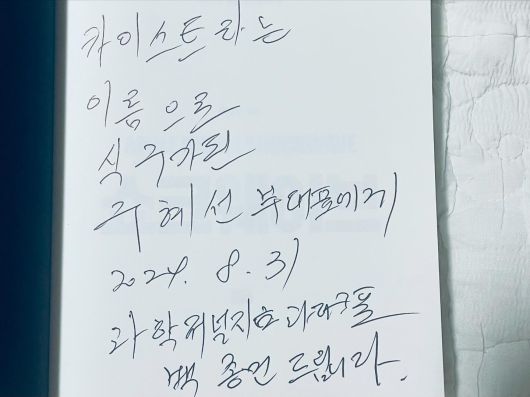 카이스트라는
이름으로
식구가 된
구혜선 부대표에게
2024. 8. 31
과학저널지
백종민 드립니다.